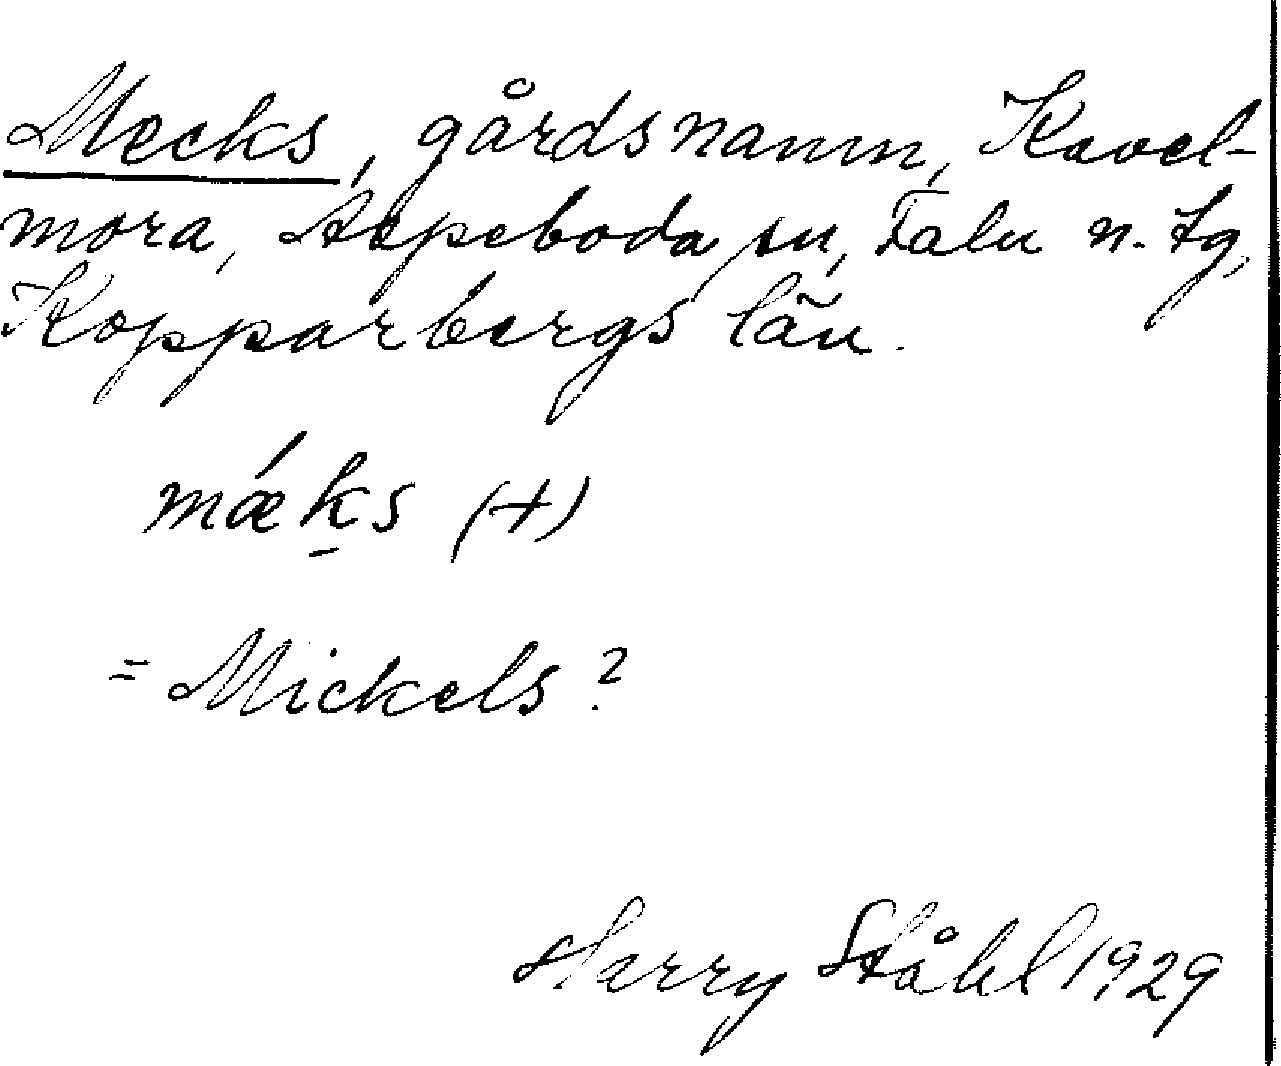 Mecks, gårdsnamn, Kavel-
mora, Aspeboda sn, Falu n. tg,
Kopparbergs län.
mǽk̲s (+)
= Mickels?
Harry Ståhl 1929